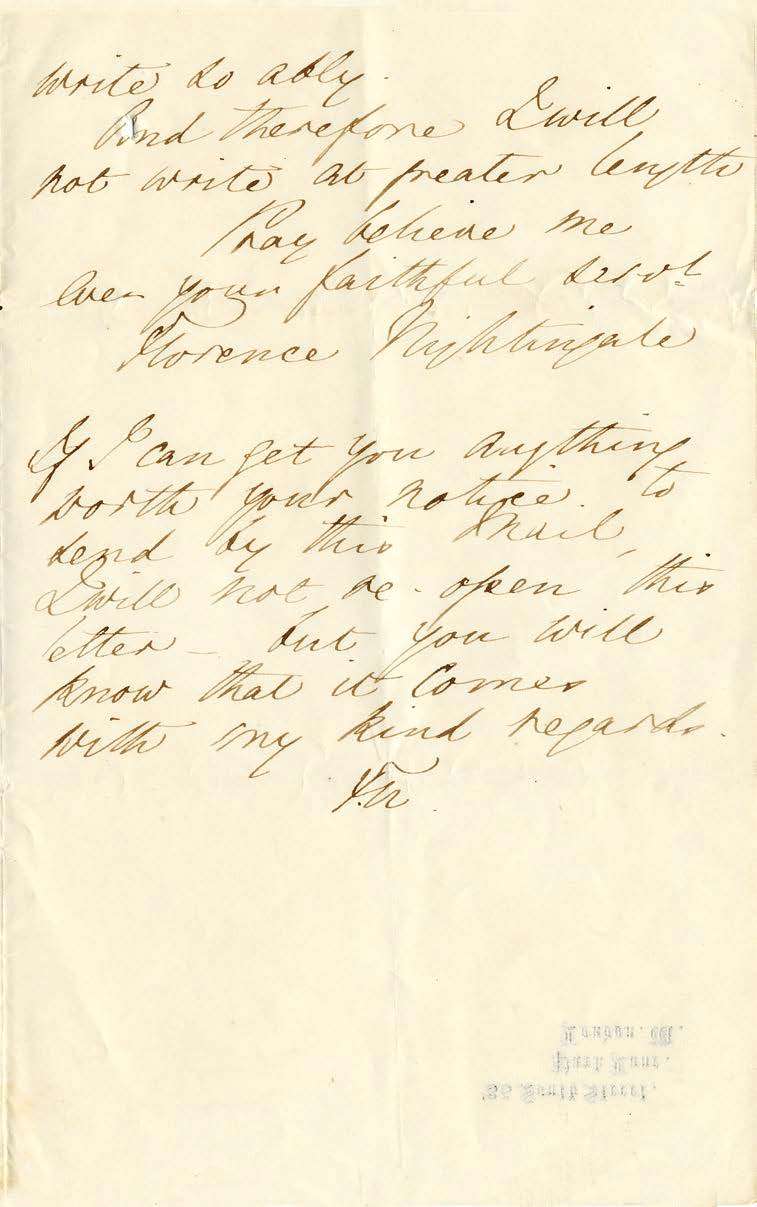 write so ably.
And therefore I will
not write at greater length
Pray believe me
ever your faithful servt.
Florence Nightingale
If I can get you anything
worth your notice to
send by this Mail,
I will not re-open this
letter - but you will
know that it comes
with my kind regards.
F.N.
London. W.
Park Lane.
35 South Street,